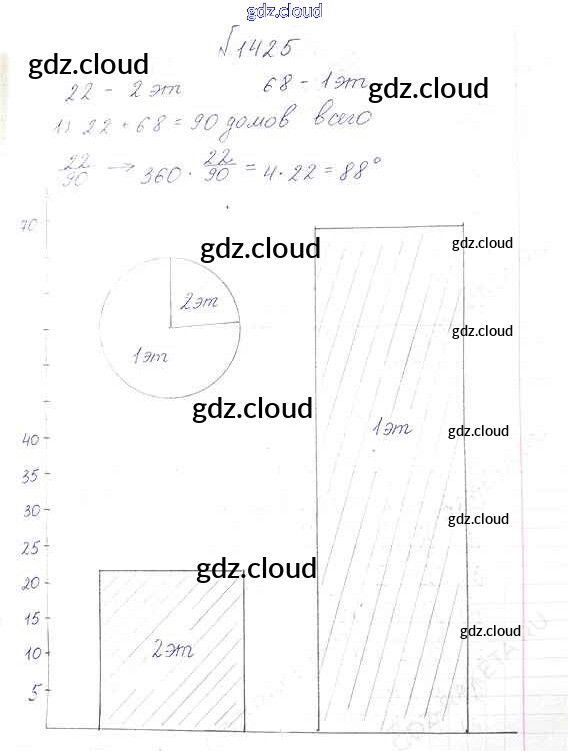 gdz.cloud
√1425
gdz.cloud
22 - 2 эт 68 - 1 эт gdz.cloud
1) 22 + 68 = 90 домов всего
22/90 → 360 · 22/90 = 4 · 22 = 88°
70
gdz.cloud gdz.cloud
2эт
gdz.cloud
1эт
gdz.cloud
1эт gdz.cloud
40
35
30
gdz.cloud
25
gdz.cloud
20
15
gdz.cloud
2эт
10
5